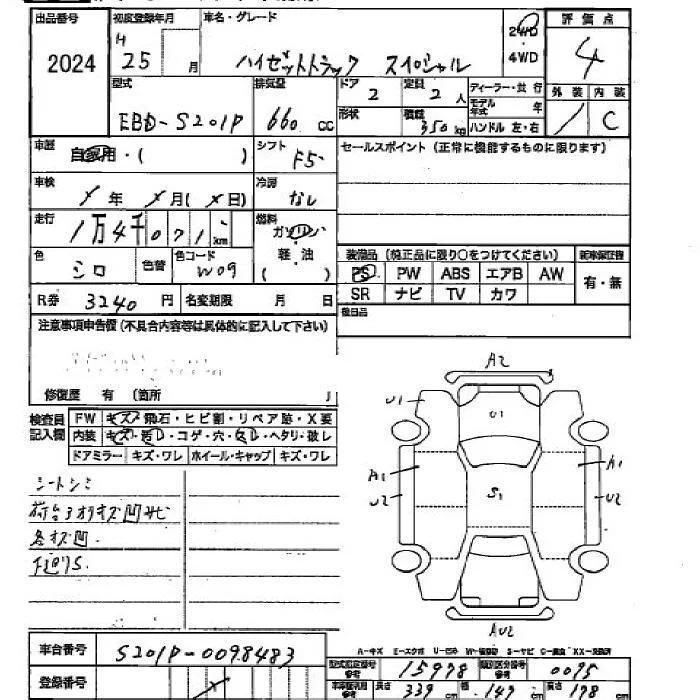 出品番号 初度登録年月 車名・グレード 評価点
2024 H 25 月 ハイゼットトラック スペシャル 2WD ・ 4WD 4
型式 排気量 ドア 定員 ディーラー・並行 外装 内装
EBD-S201P 660 cc 2 2人 モデル年式 年 C
形状 積載 350 kg ハンドル 左・右
車歴 自家用・( ) シフト F5 セールスポイント (正常に機能するものに限ります)
車検 年 月( 日) 冷房 なし
走行 1万4千071 km 燃料 ガソリン
軽油
( )
色 シロ 色替 色コード W09 装備品 (純正品に限り○をつけてください) 新車保証書
PS PW ABS エアB AW 有・無
SR ナビ TV カワ
R券 3240 円 名変期限 月 日 後日品
注意事項申告欄 (不具合内容等は具体的に記入して下さい)
修復歴 有 (箇所 )
検査員記入欄 FW キズ・飛石・ヒビ割・リペア跡・X要
内装 キズ・汚レ・コゲ・穴・欠品・ヘタリ・破レ
ドアミラー キズ・ワレ ホイール・キャップ キズ・ワレ
シートシミ
荷台オオキズ凹サビ
各キズ凹
下廻りS
A2
U1 U1
A1 A1
U2 S1 U2
AU2
A-キズ E-エクボ U-凹み W-補修跡 S-サビ C-腐食 XX-交換済
車台番号 S201P-0098483
型式指定番号 参考 15978 類別区分番号 参考 0075
登録番号
車検証記載 参考 長さ 339 cm 幅 147 cm 高さ 178 cm